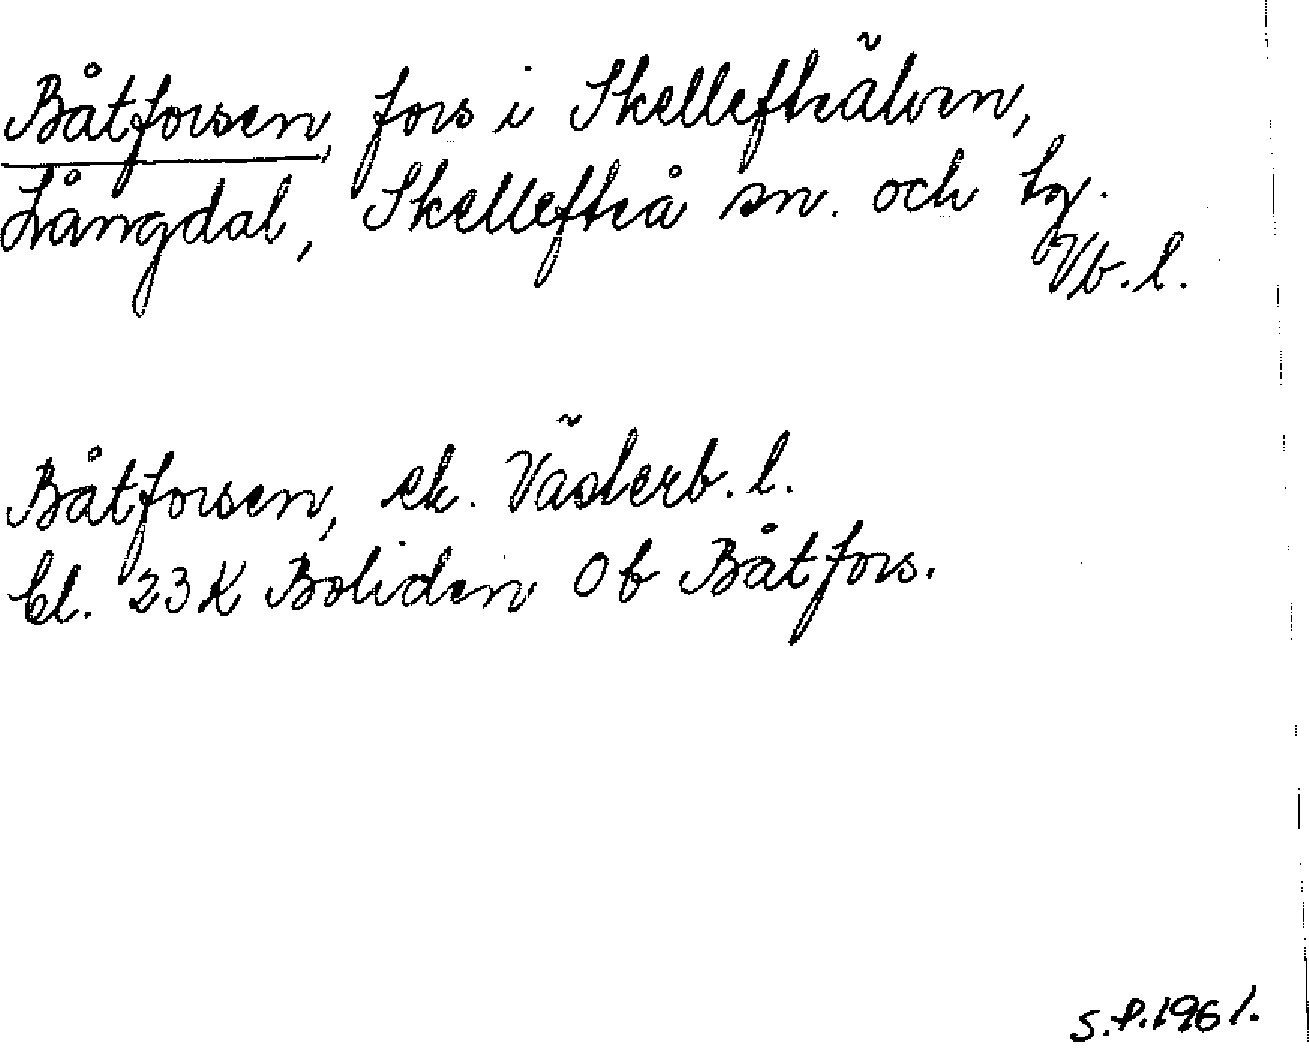 Båtforsen, fors i Skellefteälven,
Långdal, Skellefteå sn. och tg.
Vb.l.
Båtforsen, ek. Västerb.l.
bl. 23K Boliden 0b Båtfors.
S.P.1961.